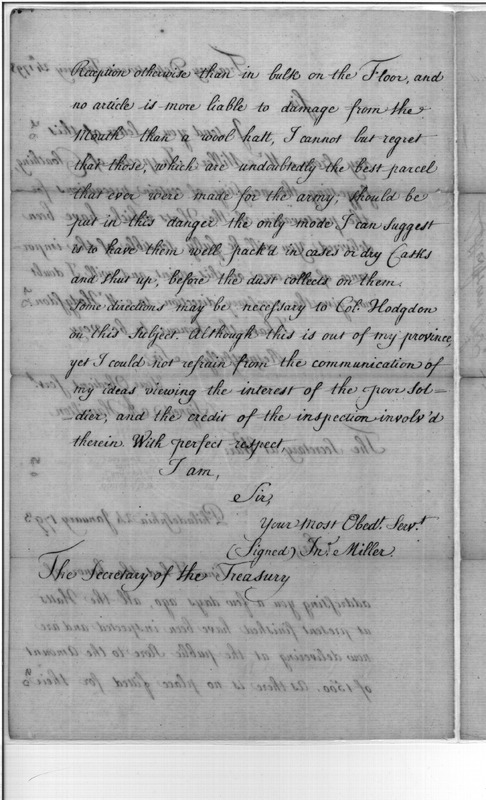 Reception otherwise than in bulk on the Floor, and
no article is more liable to damage from the
Mouth than a wool hatt, I cannot but regret
that those, which are undoubtedly the best parcel
that ever were made for the army, should be
put in this danger the only mode I can suggest
is to have them well pack'd in cases or dry Casks
and shut up, before the dust collects on them.
Some directions may be necessary to Col. Hodgdon
on this subject. Although this is out of my province,
yet I could not refrain from the communication of
my ideas viewing the interest of the poor Sol-
-dier, and the credit of the inspection involv'd
therein. With perfect respect,
I am,
Sir,
Your Most Obedt. Servt.
(Signed) Jno. Miller.
The Secretary of the Treasury